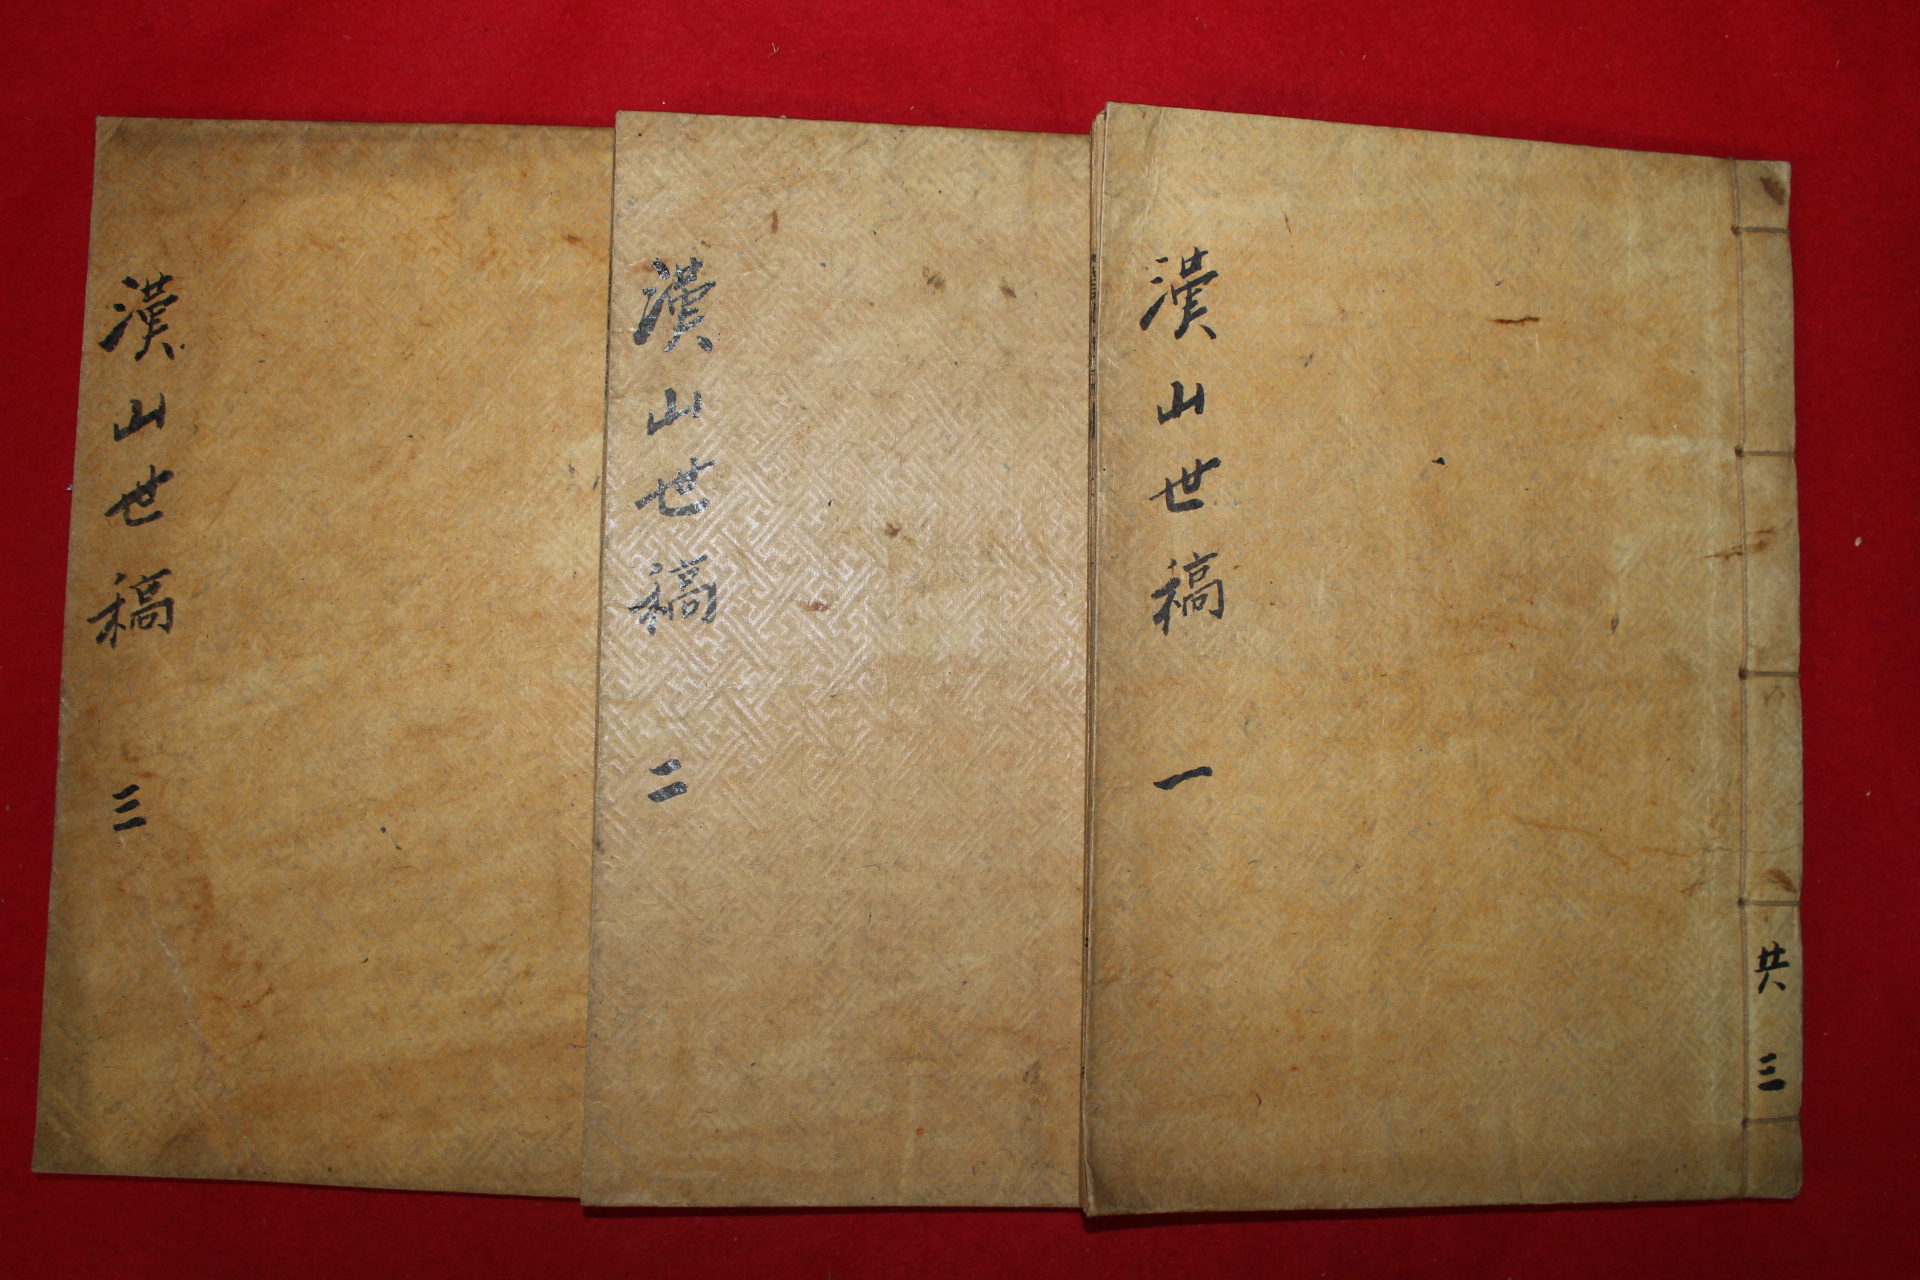 漢山世稿 一
共三
漢山世稿 二
漢山世稿 三